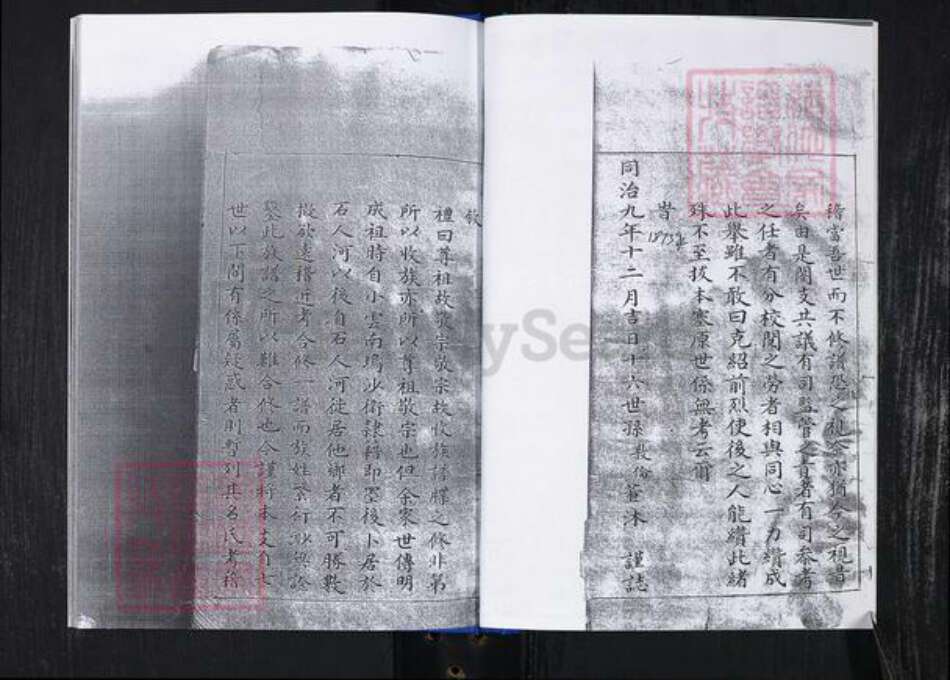 稽當吾世而不修譜恐之視今亦猶今之視昔
矣由是闔支共議有司監管之責者有司參考
之任者有分校閱之勞者相與同心一力纘成
此舉雖不敢曰克紹前烈使後之人能纘此緒
殊不至拔本塞原世係無考云爾
時
同治九年十二月吉日十六世孫 毅俗 薰沐 謹誌
敘
禮曰尊祖故敬宗敬宗故收族譜牒之修非第
所以收族亦所以尊祖敬宗也但余家世傳明
成祖時自小雲南烏沙衛隸籍即墨後卜居於
石人河以後自石人河徙居他鄉者不可勝數
擬欲遠稽近考合修一譜而族姓繁衍 無
此族譜之所以難合修也今謹將本支自七
世以下間有係屬疑惑者則暫列其名氏考稽
MySe